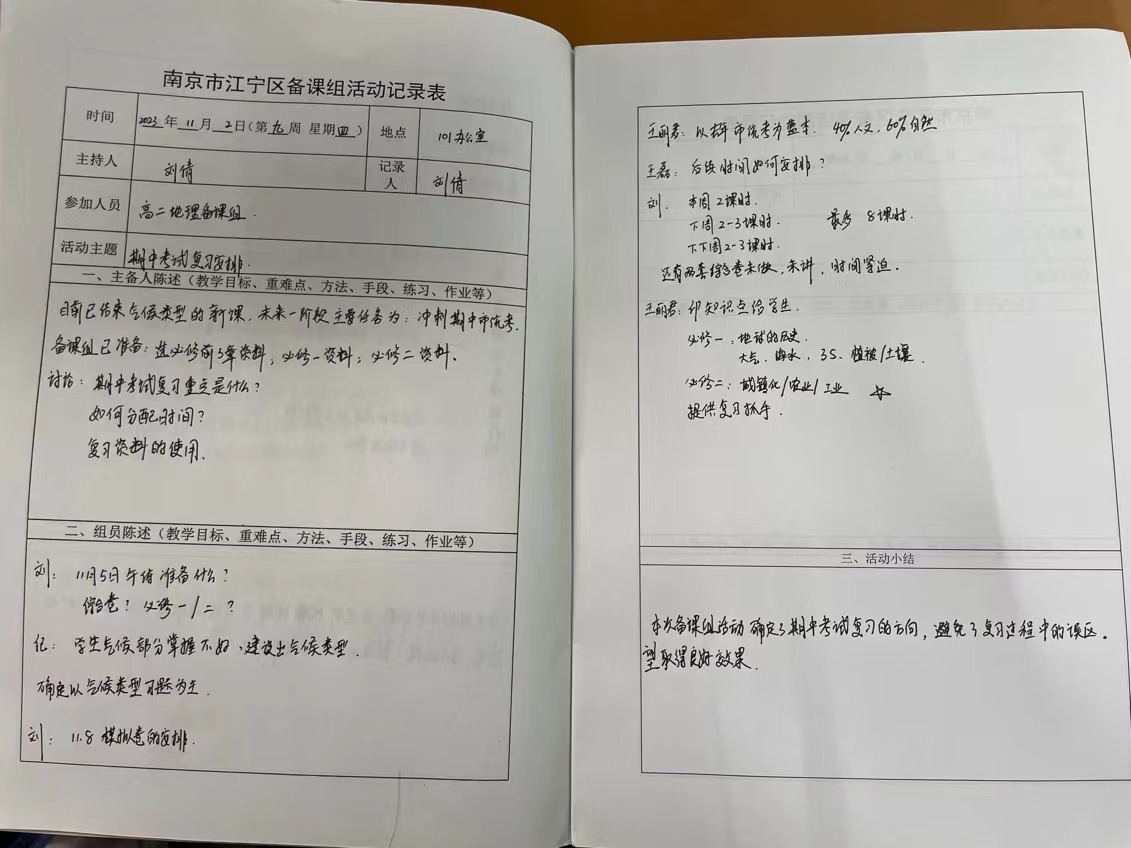 南京市江宁区备课组活动记录表
时间 2023 年 11 月 2 日(第 九 周 星期 四 ) 地点 101办公室
主持人 刘倩 记录人 刘倩
参加人员 高二地理备课组.
活动主题 期中考试复习安排.
一、主备人陈述(教学目标、重难点、方法、手段、练习、作业等)
目前已结束气候类型的新课. 未来一阶段主要任务为: 冲刺期中市统考.
备课组已准备: 选必修前3章资料; 必修一资料; 必修二资料.
讨论: 期中考试复习重点是什么?
如何分配时间?
复习资料的使用.
二、组员陈述(教学目标、重难点、方法、手段、练习、作业等)
刘: 11月5日午练准备什么?
综合卷? 必修一/二?
纪: 学生气候部分掌握不好, 建议出气候类型.
确定以气候类型习题为主.
刘: 11.8 模拟卷的安排.
王丽君: 以去年市统考为蓝本. 40%人文, 60%自然
王磊: 后续时间如何安排?
刘. 本周2课时.
下周2-3课时. 最多 8课时.
下下周2-3课时.
还有两套综合卷未做, 未讲, 时间紧迫.
王丽君: 印知识点给学生.
必修一: 地球的历史
大气, 海水, 3S, 植被/土壤
必修二: 城镇化/农业/工业 ☆
提供复习抓手.
三、活动小结
本次备课组活动确定了期中考试复习的方向, 避免了复习过程中的误区.
望取得良好效果.